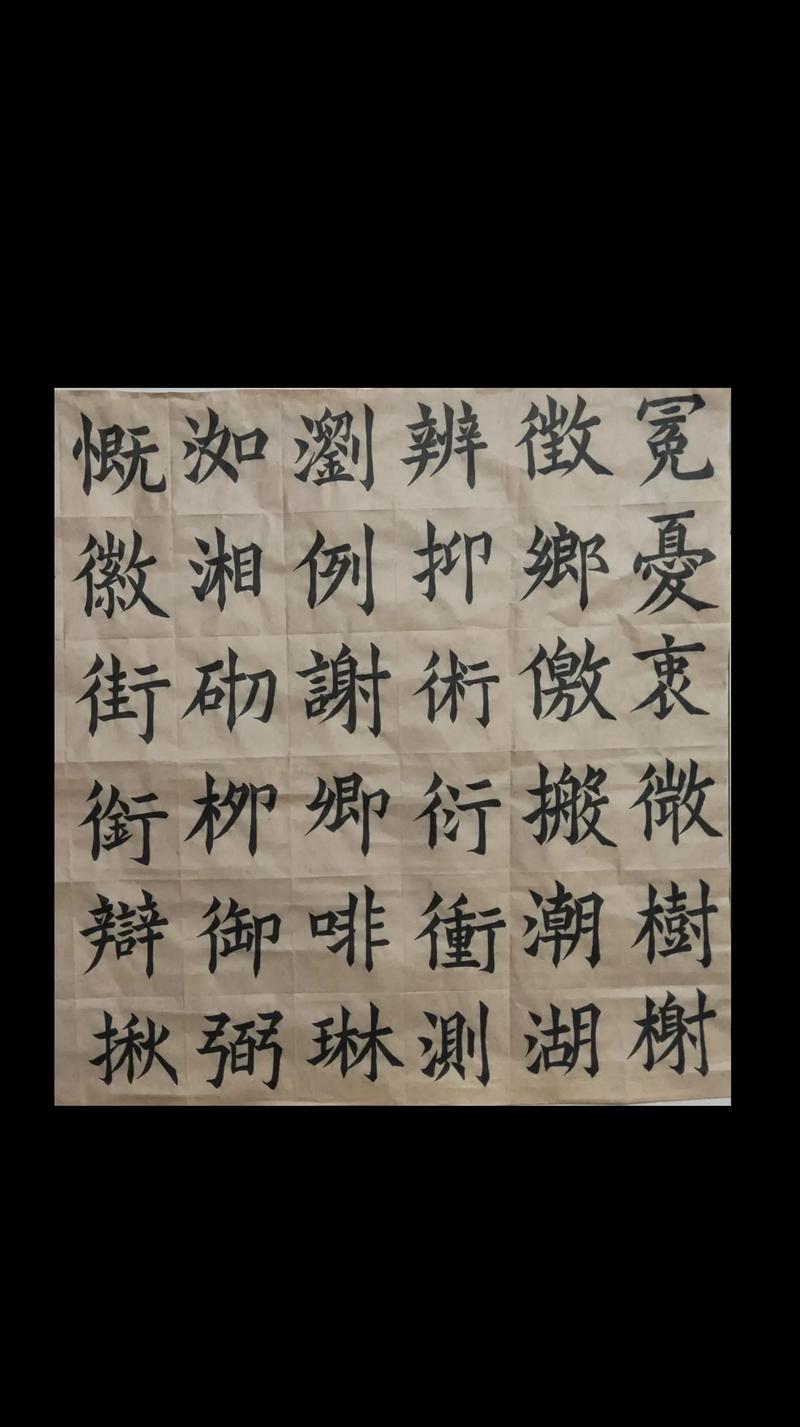 冕憂衷微樹榭
徵鄉儌搬潮湖
辨抑術衍衝測
瀏例謝卿啡琳
洳湘砌柳御弼
慨徽街銜辯揪